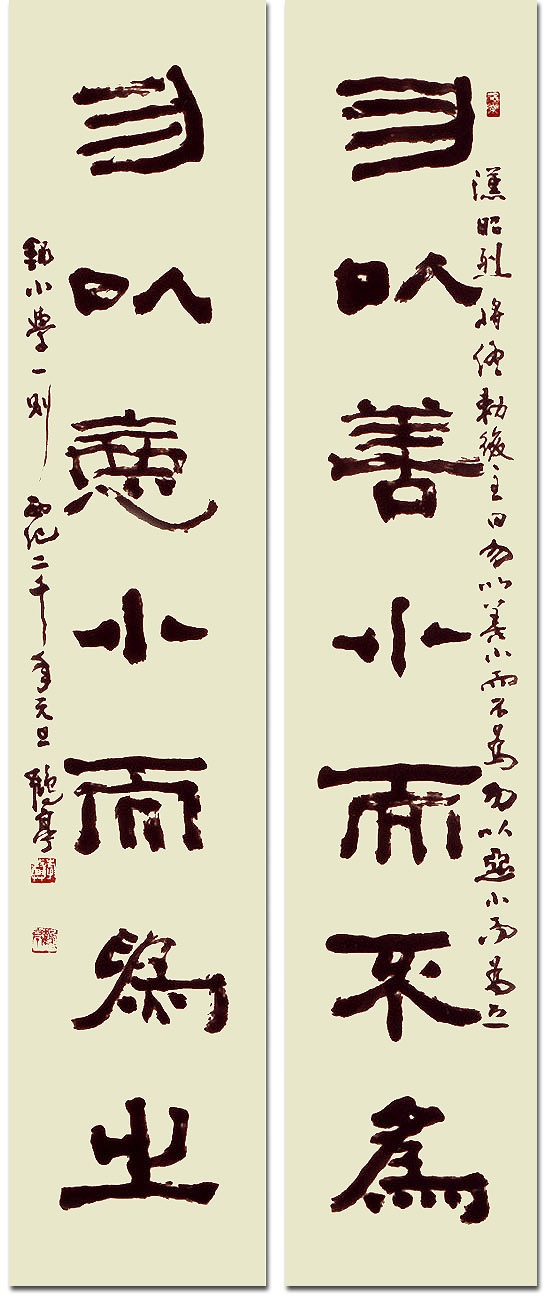 漢昭烈將終勅後主曰勿以善小而不為勿以惡小而為之
勿以善小而不為
勿以惡小而為之
錄小學一則 西紀二千年元旦 鶴亭